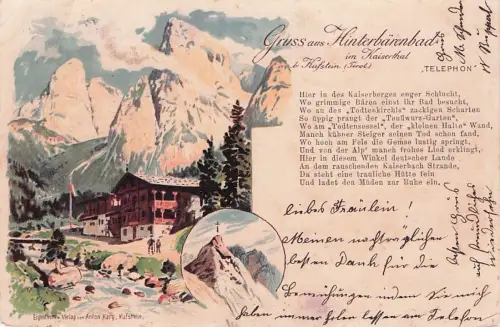 Gruss aus Hinterbärenbad
im Kaiserthal
b. Kufstein (Tirol)
„TELEPHON"
Hier in des Kaiserberges enger Schlucht,
Wo grimmige Bären einst ihr Bad besucht,
Wo an des „Todtenkirchls" zackigen Scharten
So üppig prangt der „Teufwurz-Garten",
Wo am „Todtensessel, der „kleinen Halte" Wand,
Manch kühner Steiger seinen Tod schon fand,
Wo hoch am Fels die Gemse lustig springt,
Und von der Alp' manch frohes Lied erklingt,
Hier in diesem Winkel deutscher Lande
An dem rauschenden Kaiserbach Strande,
Da steht eine trauliche Hütte fein
Und ladet den Müden zur Ruhe ein.
liebes Fräulein!
Meinen nachträglichen
besten Dank für die
Bemühungen indem Sie mich
haben immer holen lassen am Telefon
Eigenthum u. Verlag von Anton Karg, Kufstein.